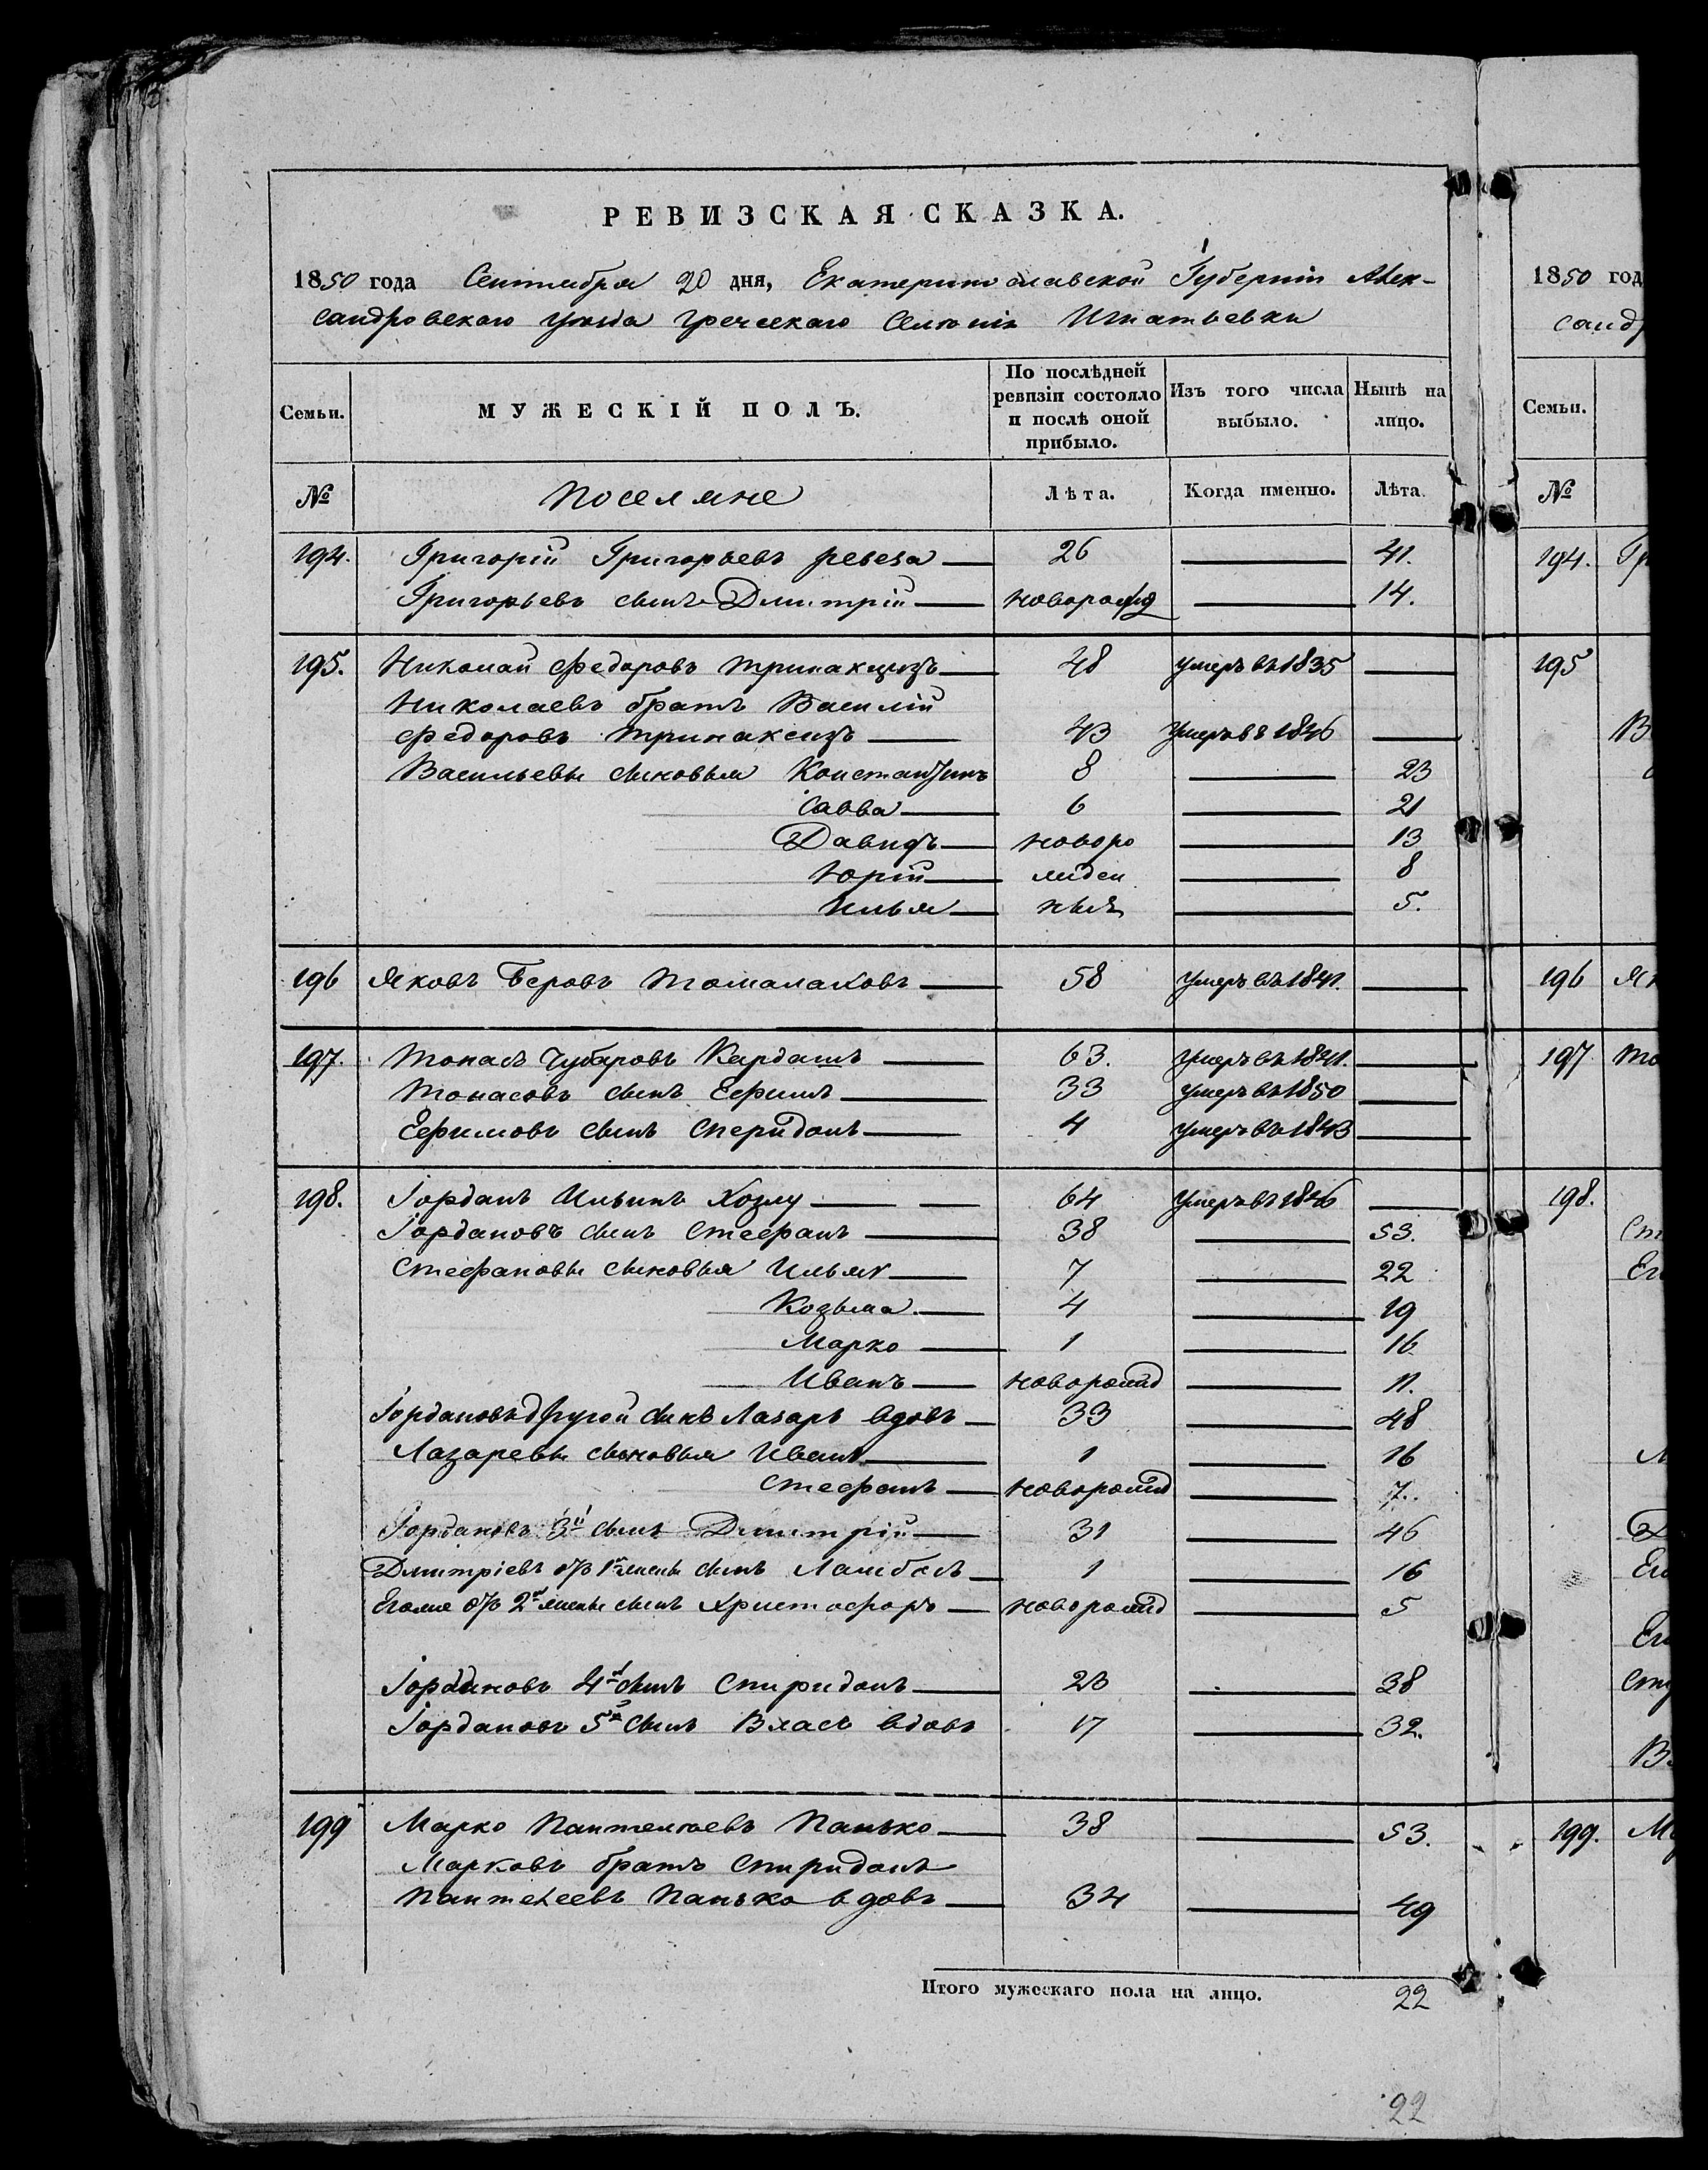 РЕВИЗСКАЯ СКАЗКА.
1850 года Сентября 20 дня, Екатеринославской Губерніи Алек-
сандровскаго уѣзда Греческаго Селенія Игнатьевки
Семьи. МУЖЕСКІЙ ПОЛЪ. По послѣдней ревизіи состояло и послѣ оной прибыло. Изъ того числа выбыло. Нынѣ на лицо.
№ Поселяне Лѣта. Когда именно. Лѣта.
194. Григорій Григорьевъ ревеза 26 — 41.
Григорьевъ сынъ Дмитрій новорожд — 14.
195. Николай Федоровъ 48 умеръ въ 1835 —
Николаевъ братъ Василій
Федоровъ 43 умеръ въ 1846 —
Васильевы сыновья Константинъ 8 — 23
Савва 6 — 21
Давидъ новоро — 13
Юрій жден — 8
Илья ные — 5.
196 Яковъ Томалаковъ 58 умеръ въ 1841. —
197. Топасъ Чубаровъ Кардашъ 63. умеръ въ 1841. —
Топасовъ сынъ Ефимъ 33 умеръ въ 1850 —
Ефимовъ сынъ Сперидонъ 4 умеръ въ 1843 —
198. Іорданъ Ильинъ Хозлу 64 умеръ въ 1846 —
Іордановъ сынъ Стефанъ 38 — 53.
Стефановы сыновья Илья 7 — 22
Козьма 4 — 19
Марко 1 — 16
Иванъ новорожд — 11.
Іордановъ другой сынъ Лазарь вдовъ 33 — 48
Лазаревы сыновья Иванъ 1 — 16
Стефанъ новорожд — 7.
Іордановъ 3й сынъ Дмитрій 31 — 46
Дмитріевъ отъ 1й жены сынъ Ламбосъ 1 — 16
Егоже отъ 2й жены сынъ Христофоръ новорожд — 5
Іордановъ 4й сынъ Спиридонъ 23 — 38
Іордановъ 5й сынъ Власъ вдовъ 17 — 32.
199 Марко Пантелѣевъ Панько 38 — 53.
Марковъ братъ Спиридонъ
Пантелеевъ Панько вдовъ 34 — 49
Итого мужескаго пола на лицо. 22
22
1850 год
санд
Семьи.
№
194. Гр
195
В
196 Як
197 То
198.
Ст
Ег
Л
Д
Ег
Ег
Спи
В
199. Ма